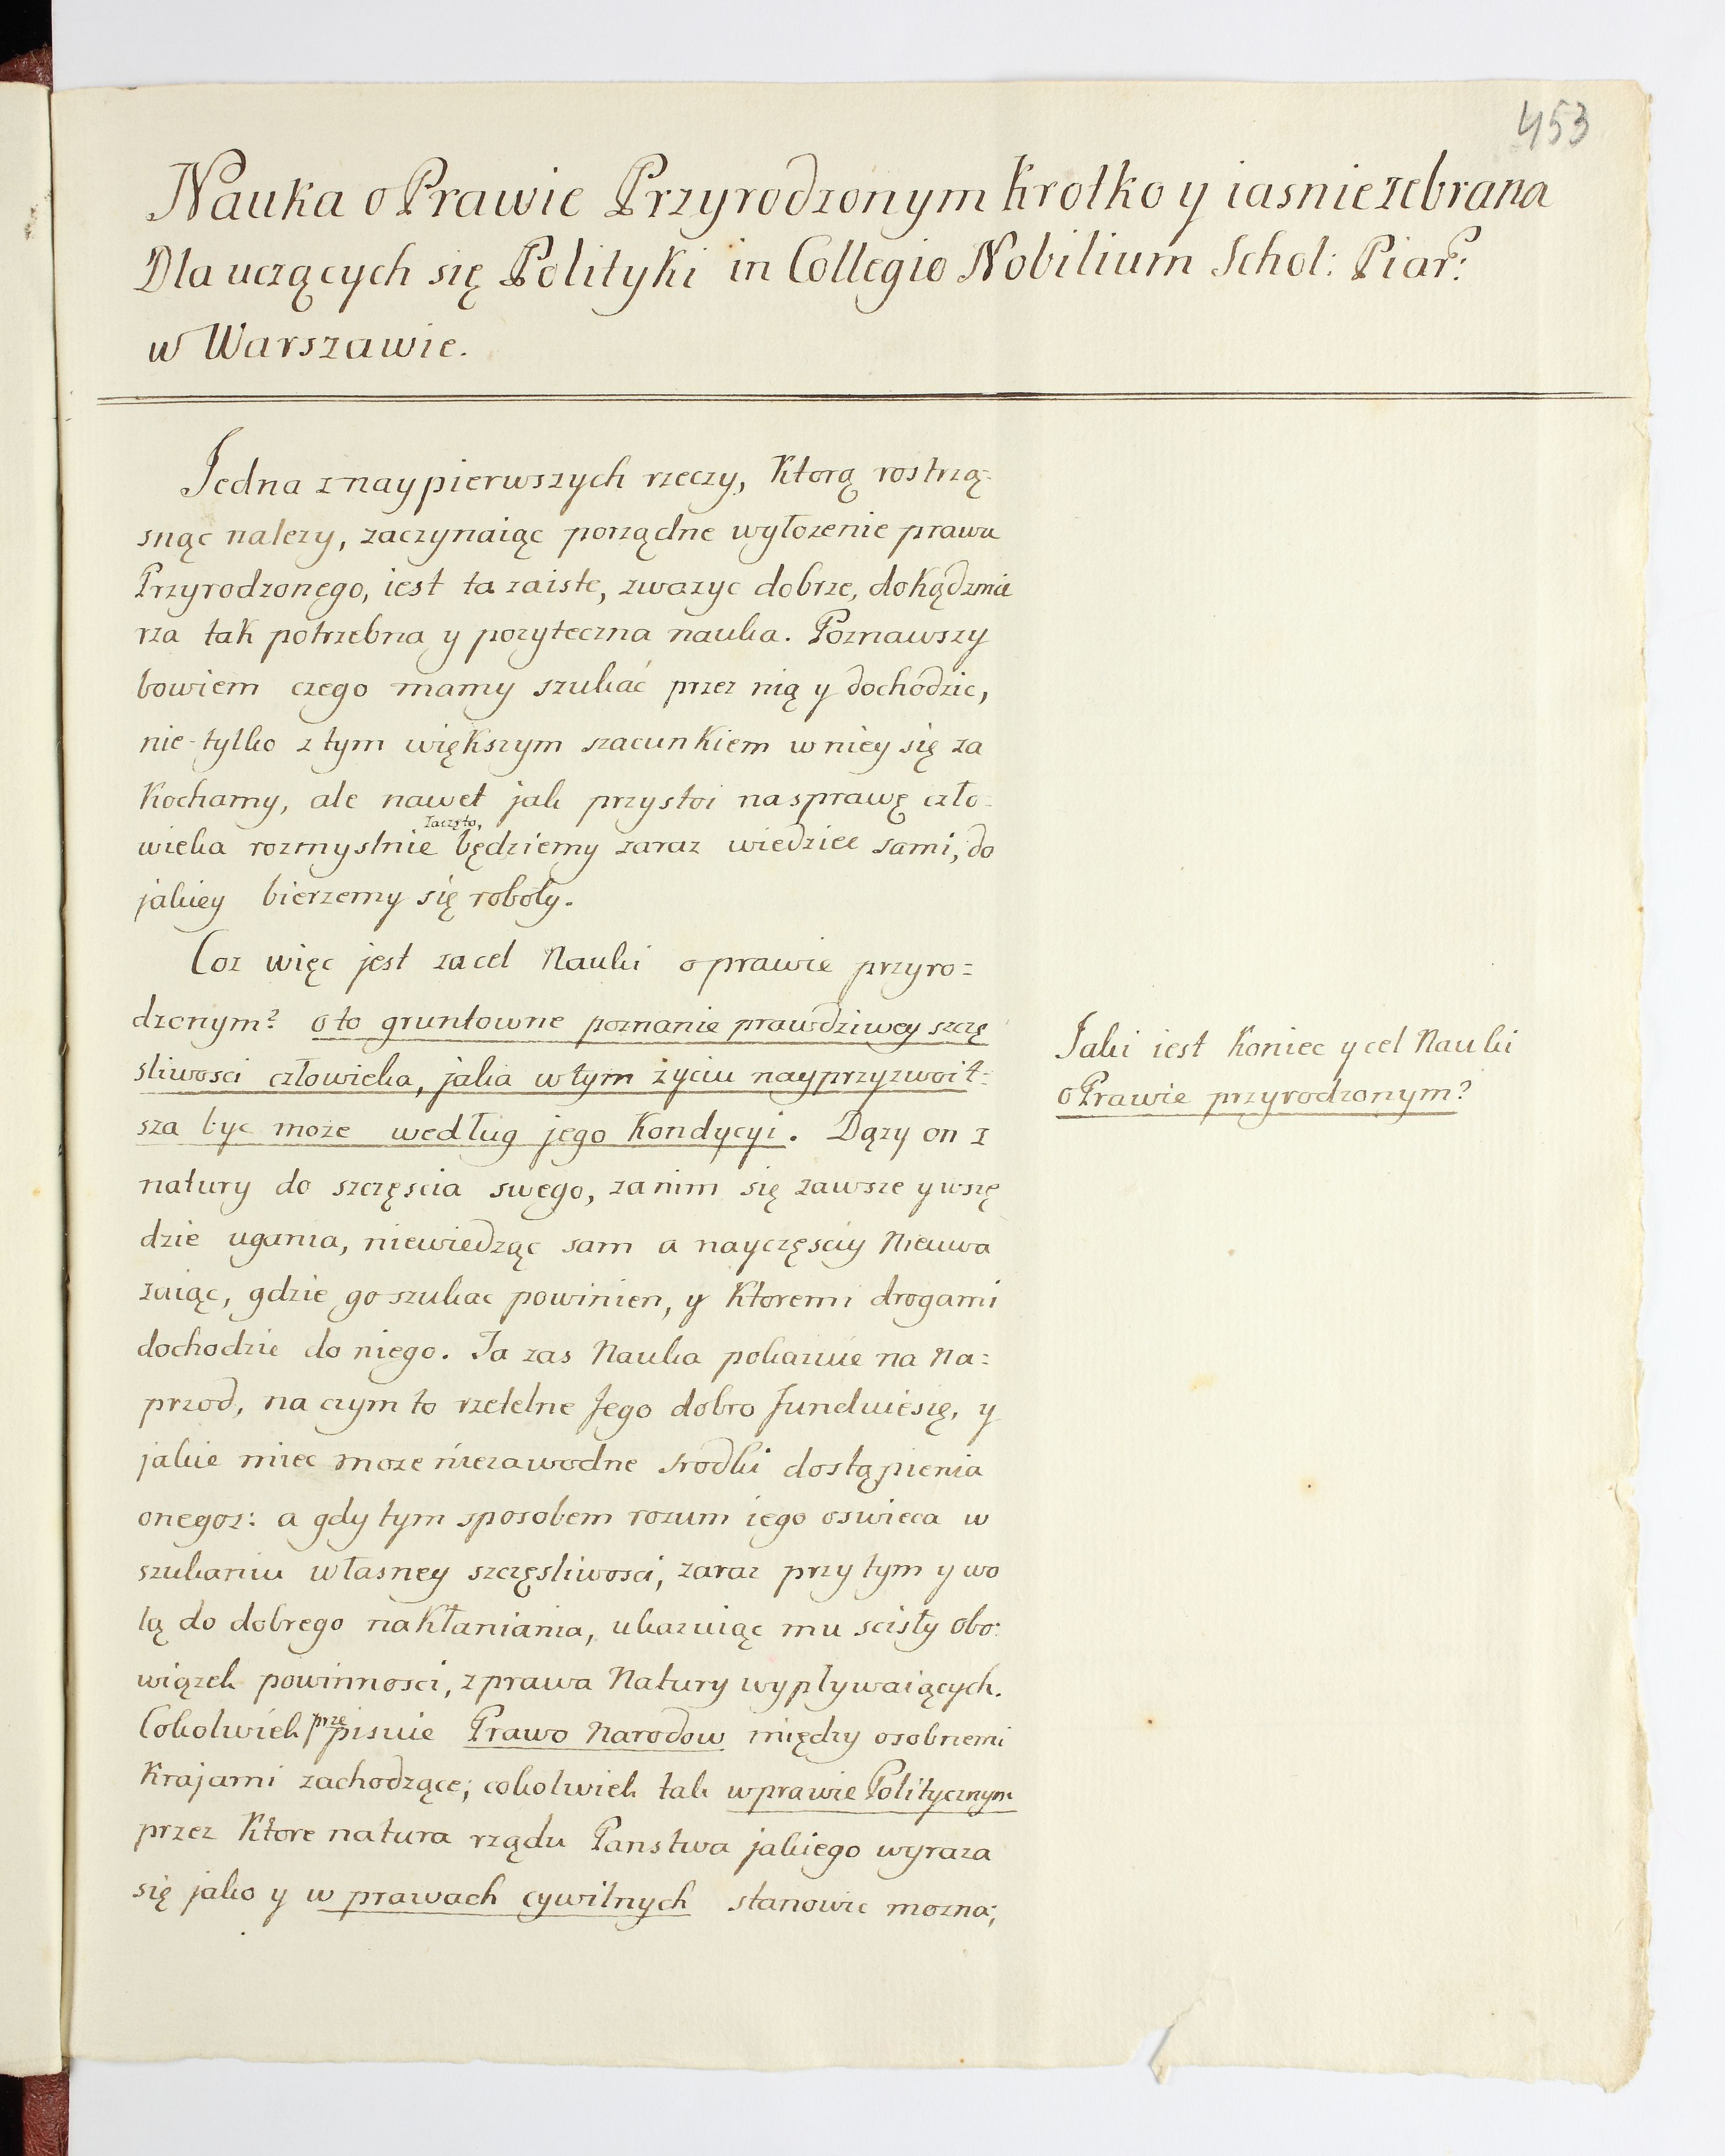 453
Nauka o Prawie Przyrodzonym Krotko y iasnie zebrana
Dla uczących się Polityki in Collegio Nobilium Schol: Piar:
w Warszawie.
Jedna z naypierwszych rzeczy, Ktorą rostrzą-
snąc nalezy, zaczynaiąc porządne wyłozenie prawa
Przyrodzonego, iest ta zaiste, zwazyc dobrze, dokąd zmie
rza tak potrzebna y pozyteczna nauka. Poznawszy
bowiem czego mamy szukać przez nią y dochodzic,
nie-tylko z tym większym szacunkiem w niey się za
Kochamy, ale nawet jak przystoi na sprawę czło-
zaczęto,
wieka rozmyslnie będziemy zaraz wiedziec sami, do
jakiey bierzemy się roboty.
Coz więc jest za cel Nauki o prawie przyro=
dzonym? oto gruntowne poznanie prawdziwey szczę
sliwosci człowieka, jaka w tym życiu nayprzyzwoit-
sza byc może według jego Kondycyi. Dązy on z
natury do szczęscia swego, za nim się zawsze y wszę
dzie ugania, niewiedząc sam a nayczęsciy Nieuwa
zaiąc, gdzie go szukac powinien, y Ktoremi drogami
dochodzic do niego. Ta zas Nauka pokazuie na Na=
przod, na czym to rzetelne Jego dobro funduie się, y
jakie miec moze niezawodne srodki dostąpienia
onegoz: a gdy tym sposobem rozum iego oswieca w
szukaniu własney szczęsliwosci, zaraz przy tym y wo
lą do dobrego nakłaniania, ukazuiąc mu scisły obo-
wiązek powinnosci, z prawa Natury wypływaiących.
prze
Cokolwiek pisuie Prawo Narodow między osobnemi
Krajami zachodzące; cokolwiek tak w prawie Politycznym
przez Ktore natura rządu Panstwa jakiego wyraza
się jako y w prawach cywilnych stanowic mozna;
Jaki iest Koniec y cel Nauki
o Prawie przyrodzonym?